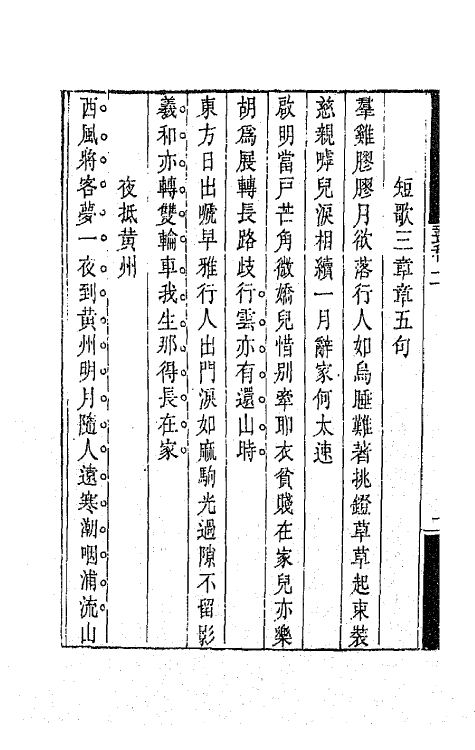 短歌三章章五句
羣雞膠膠月欲落行人如烏睡難著挑鐙草草起束裝
慈親啍兒淚相續一月辭家何太速
啟明當戶芒角微嬌兒惜别牽耶衣貧賤在家兒亦樂
胡爲展轉長路歧行雲亦有還山時
東方日出嗁早雅行人出門淚如麻駒光過隙不留影
羲和亦轉雙輪車我生那得長在家
夜抵黃州
西風將客夢一夜到黃州明月隨人遠寒潮咽浦流山
二